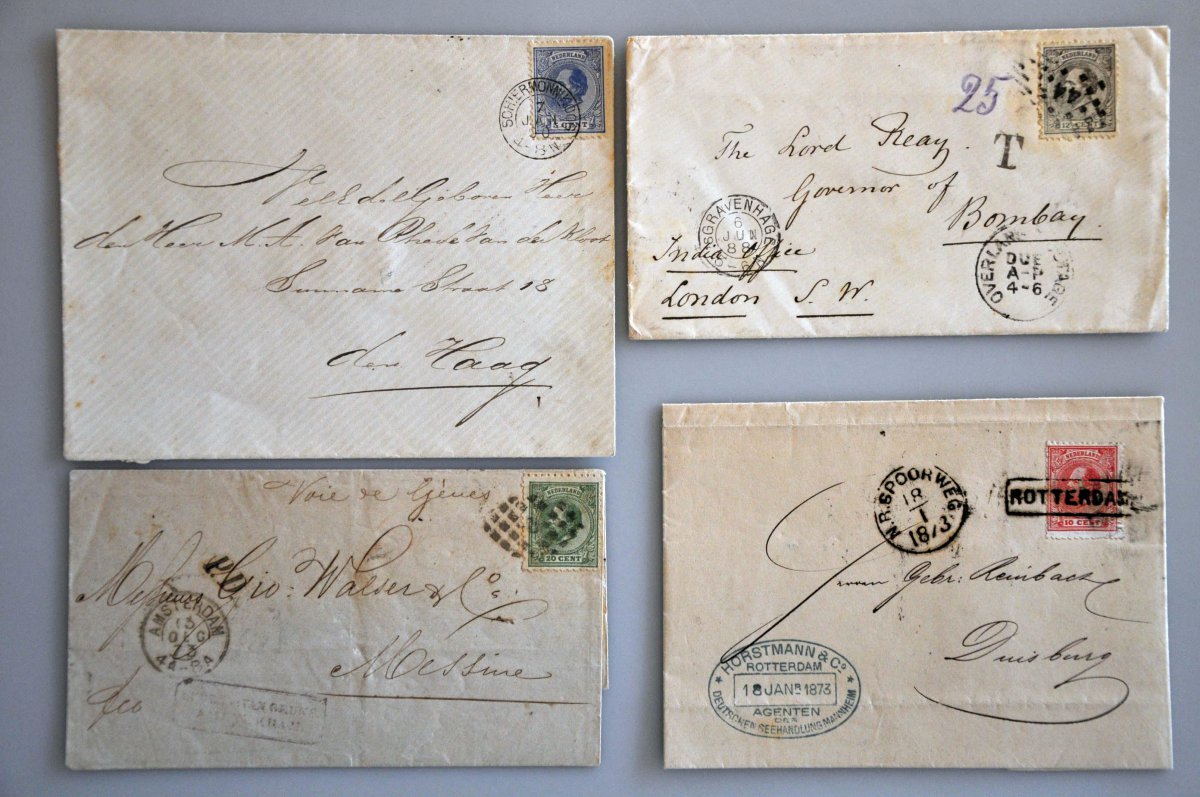 NEDERLAND
5 CENT
SCHIERMONNIKOOG
7
JAN
WelEdelGeboren Heer
den Heer M. A. Van Rhede Van der Kloot
Suriname Straat 18
den Haag
NEDERLAND
44
25
T
The Lord Reay.
Governor of
Bombay.
'SGRAVENHAGE
6
JUN
88
India Office
London S. W.
OVERLAND POSTAGE
DUE
A-P
4-6
NEDERLAND
20 CENT
Voie de Gènes
P.D.
Messieurs Gio: Walser & Co.
Messine
AMSTERDAM
13
DEC
NEDERLAND
10 CENT
ROTTERDAM
N.R.SPOORWEG
18
1
1873
Herren Gebr: Reinbach
Duisburg
HORSTMANN & Co.
ROTTERDAM
18 JANR. 1873
AGENTEN
DER
DEUTSCHEN SEEHANDLUNG MANNHEIM